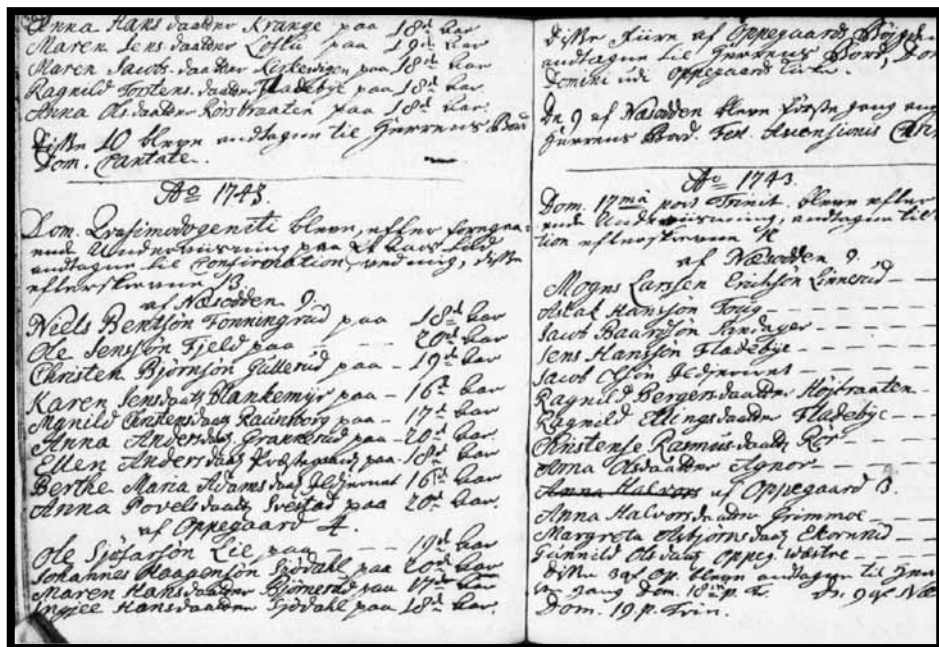 Anna Hans daatter Krange paa 18de Aar
Maren Jens daatter Loftu paa 19de Aar
Maren Jacobs daatter Kirkevigen paa 18de Aar
Ragnild Torstens daatter Fladebÿe paa 18de Aar
Anna Ols daatter Rorsbraaten paa 18de Aar.
Disse 10 bleve andtagne til Herrens Bord
Dom. Cantate.
Ao 1743.
Dom. Qvasimodogeniti bleve, efter foregaa-
ende Underviisning paa
andtagne til Confirmation, ved mig, disse
efterskrevne 13.
af Næsodden 9.
Niels Bentsøn Fonningrud paa 18de Aar
Ole Jensøn Fjeld paa - - - 20de Aar
Christen Bjørnsøn Gullerud paa - 19de Aar
Karen Jensdaatr Blankemÿr paa - 16de Aar
Mgnild Christensdaatr Raunborg paa - 17de Aar
Anna Andersdaatr Grankerud paa - 20de Aar
Ellen Andersdaatr Præstegaard paa - 18de Aar
Berthe Maria Adamsdaatr Jldjernet 16de Aar
Anna Povelsdaatr Svestad paa 20de Aar
af Oppegaard 4.
Ole Sjøfarsøn Lie paa - - - 19de Aar
Johannes Haagensøn Sjødahl paa 20de Aar
Maren Hansdaatter Bjørnerud paa 17de Aar
Ingjee Hansdaatter Sjødahl paa 18de Aar.
Disse fiire af Oppegaards Bøÿgden
andtagne til Herrens Bord, Dom
Domini udi Oppegaards Kirke.
De 9 af Næsodden bleve første gang
Herrens Bord. Fer. Ascensionis
Ao 1743.
Dom. 17ma post Trinit. bleve efter
ende Underviisning, andtagne til
tion efterskrevne 12
af Næsodden 9.
Mogns Larssen Erichsøn Linnerud - -
Oluf Hansøn Toug - - - -
Jacob Baardsøn Sandager - - - -
Jens Hanssøn Fladebÿe - - - -
Jacob Olsøn Jldjernet - - - -
Ragnild Bergersdaatter Højbraaten -
Ragnild Ellingsdaatter Fladebÿe - -
Christense Rasmusdaatr Roer - - -
Anna Olsdaatter Agnor - - - -
Anna Halvors af Oppegaard 3.
Anna Halvorsdaatter Grimmoe - -
Margreta Asbjørnsdaatr Ekornrud -
Gunnild Olsdaatr Oppeg. Wæstre - -
Disse 3 af Op. bleve andtagne til
gang Dom. 18 p. Tr. De 9 af Næ
Dom. 19. p. Trin.